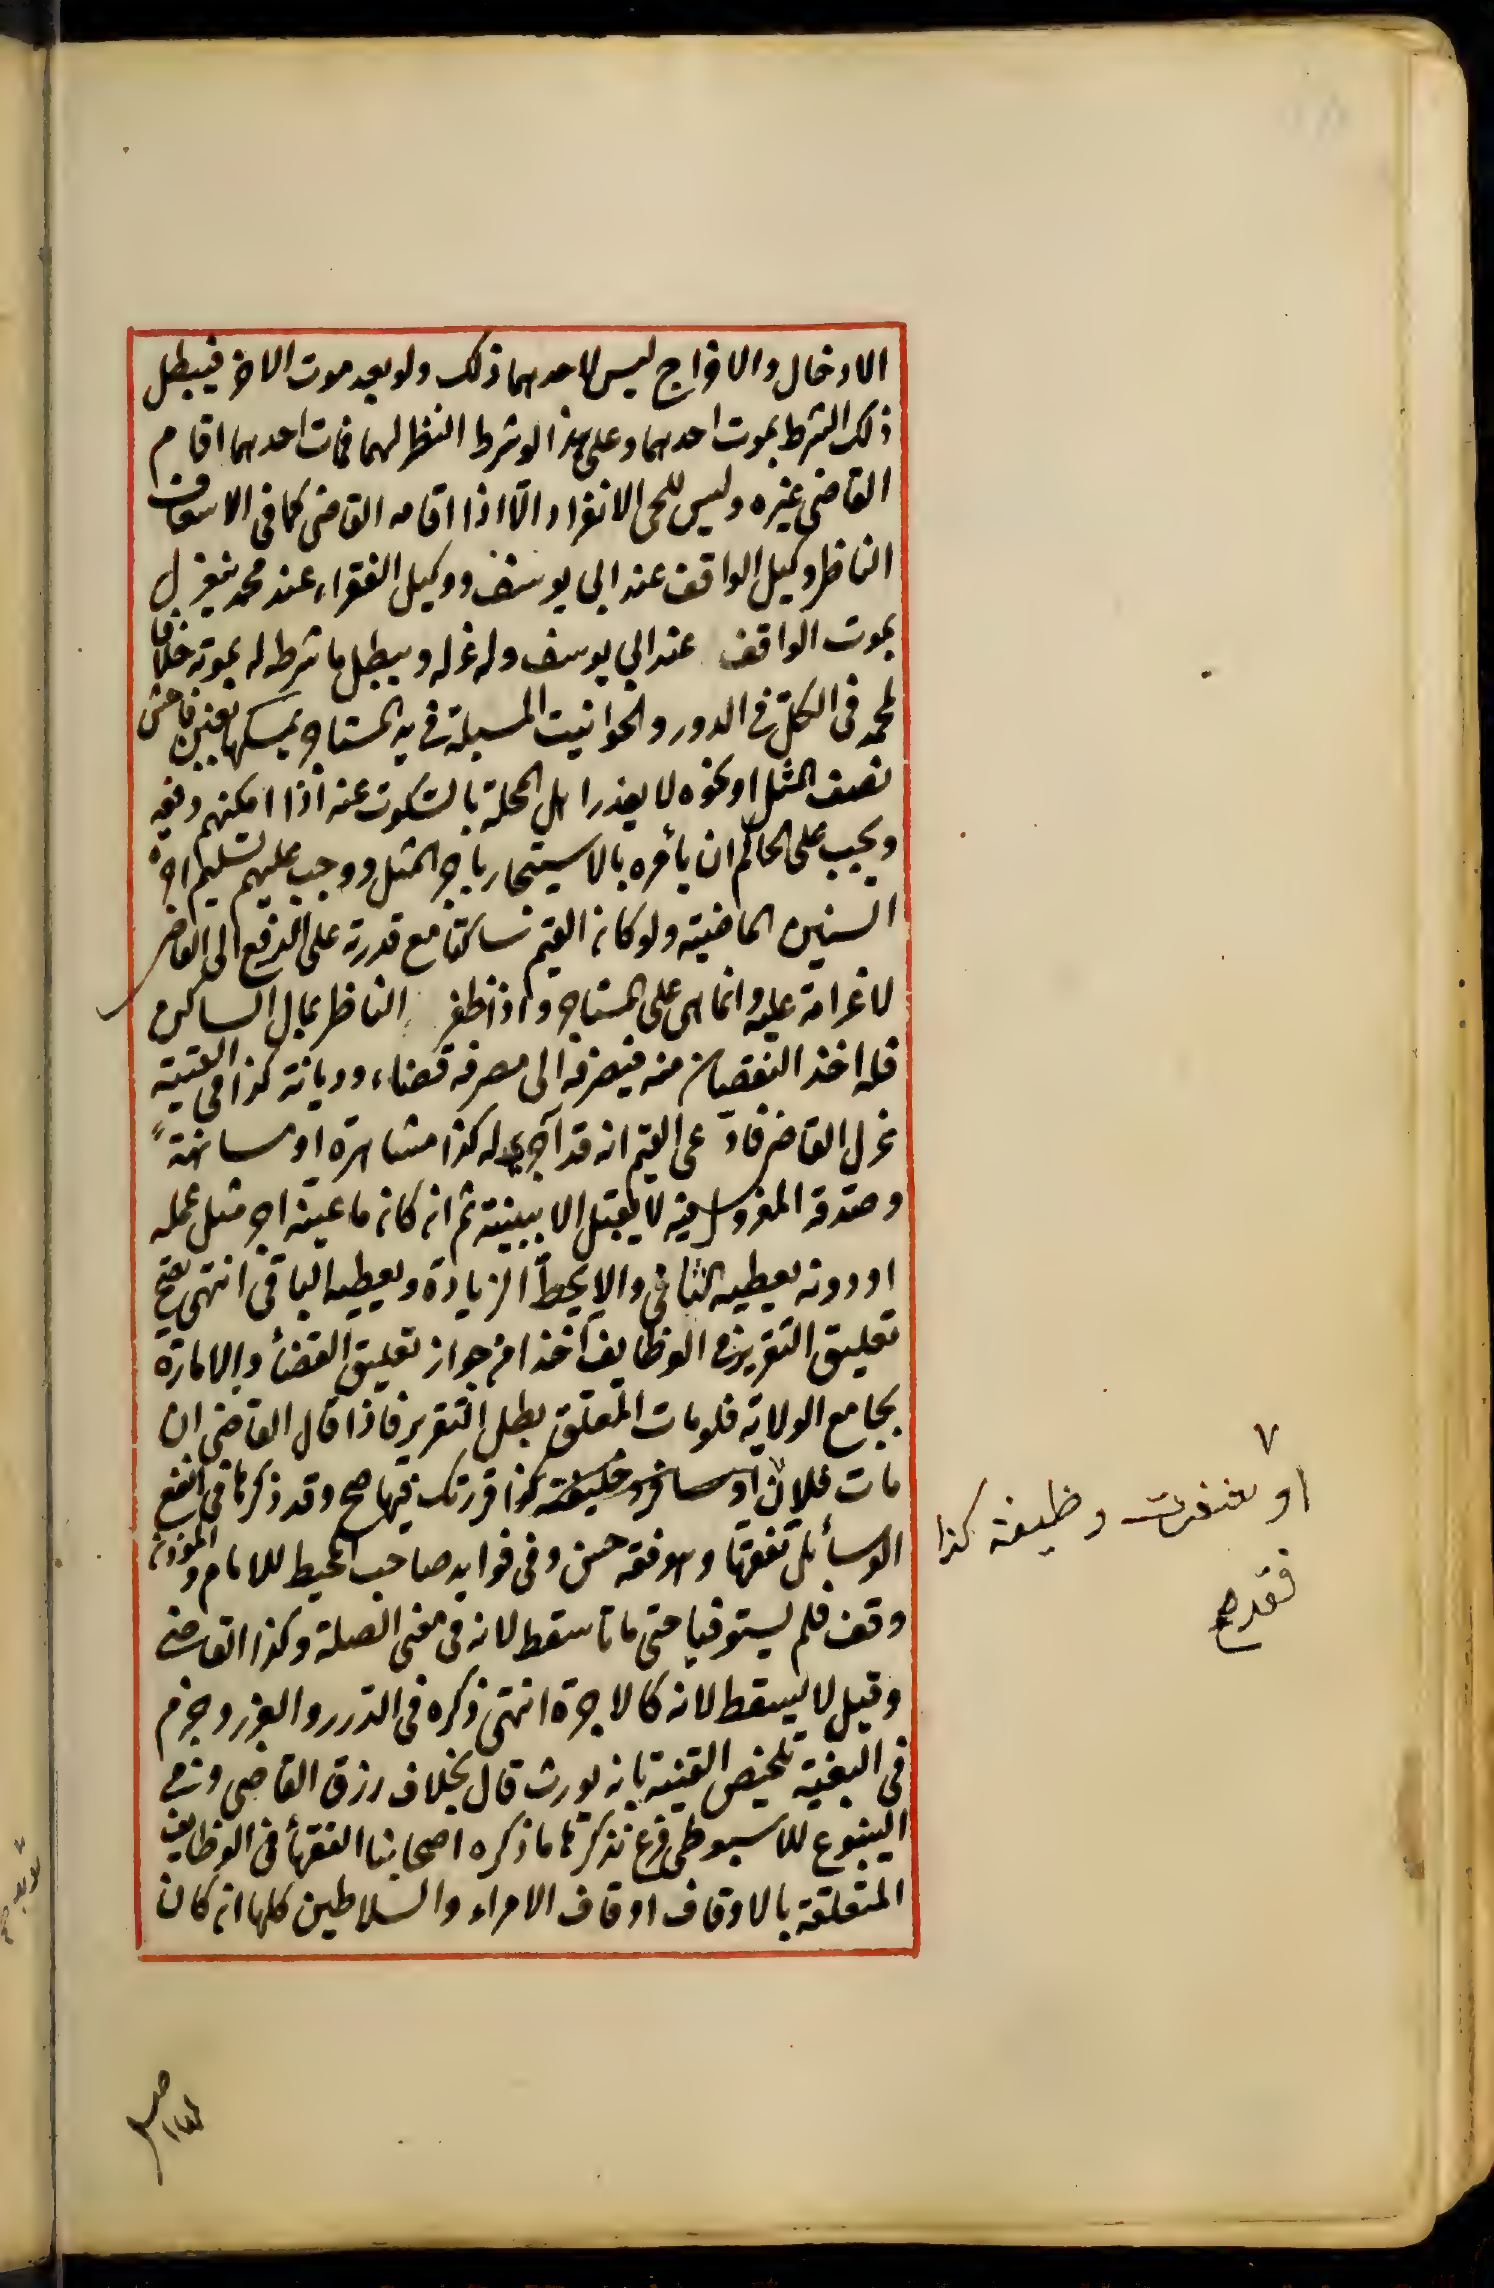 الادخال والاخراج ليس لاحدهما ذلك ولو بعد موت الاخر فيبطل
ذلك الشرط بموت احدهما وعلى هذا لو شرط النظر لهما فمات احدهما اقام
القاضي غيره وليس للحي الانفراد الّا اذا اقامه القاضي كما في الاسعاف
الناظر وكيل الواقف عند ابي يوسف ووكيل الفقراء عند محمد ينعزل
بموت الواقف عند ابي يوسف وله عزله ويبطل ما شرطه له بموته خلافا
لمحمد في الكل في الدور والحوانيت المسبلة في يد المستاجر يمسكها بغبن فاحش
نصف المثل او نحوه لا يعذر اهل المحلة بالسّكوت عنه اذا امكنهم دفعه
ويجب على الحاكم ان يأمره بالاستيجار باجر المثل ووجب عليهم تسليم اجر
السنين الماضية ولو كان القيم ساكتا مع قدرته على الدفع الى القاضي
لا غرامة عليه وانما هي على المستاجر واذا ظفر الناظر بمال الساكن
فله اخذ النقصان منه فيصرفه الى مصرفه قضاء وديانة كذا في القنية
عزل القاضي فادّعى القيم انه قد اجرى له كذا مشاهرة او مسانهة
وصدقه المعزول فيه لا يقبل الا ببينة ثم ان كان ما عينه اجر مثل عمله
او دونه يعطيه الثاني والا يحطّ الزيادة ويعطيه الباقي انتهى يصح
تعليق التقرير في الوظايف اخذا من جواز تعليق القضأ والامارة
بجامع الولاية فلو مات المعلق بطل التقرير فاذا قال القاضي ان
مات فلان او سافر وظيفته كذا قررتك فيها صح وقد ذكرها في انفع
الوسأئل تفقها وهو فقه حسن وفي فوايد صاحب المحيط للامام والمؤذن
وقف فلم يستوفيا حتى ماتا سقط لانه في معنى الصلة وكذا القاضي
وقيل لا يسقط لانه كالاجرة انتهى ذكره في الدرر والغرر وجزم
في البغية تلخيص القنية بانه يورث قال بخلاف رزق القاضي وفي
الينبوع للاسيوطي فرع نذكر ها ما ذكره اصحابنا الفقهأ في الوظايف
المتعلقة بالاوقاف اوقاف الامراء والسلاطين كلها ان كان
٧
او وظيفة كذا
فقد صح